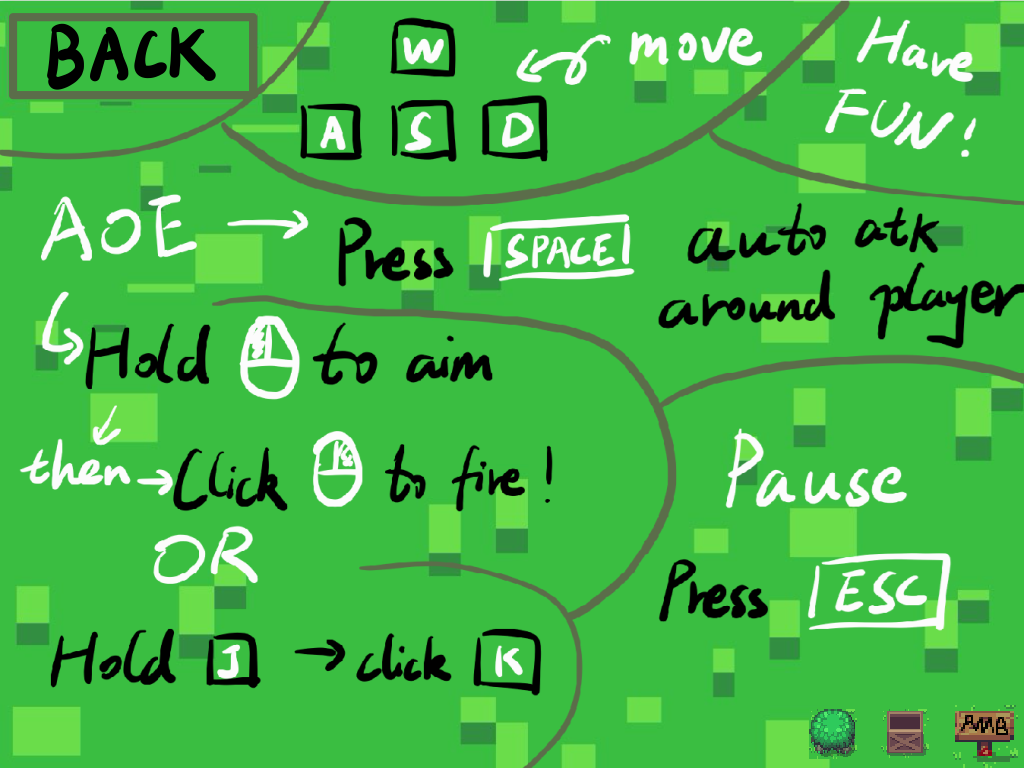 BACK
W
A S D
move
Have
FUN!
AOE → Press SPACE
auto atk
around player
Hold to aim
then → Click to fire!
OR
Hold J → click K
Pause
Press ESC
AMB